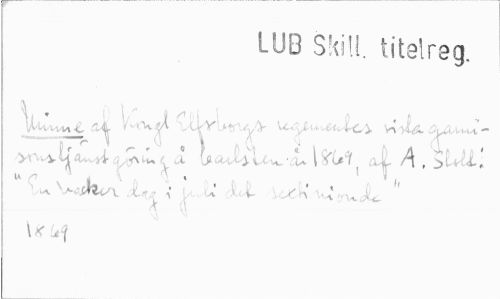 LUB Skill. titelreg.
Minne af Kongl Elfsborgs regementes sista garni-
sonstjänstgöring å Carlsten år 1869, af A. Stolt:
"En vacker dag i juli det sextinionde"
1869